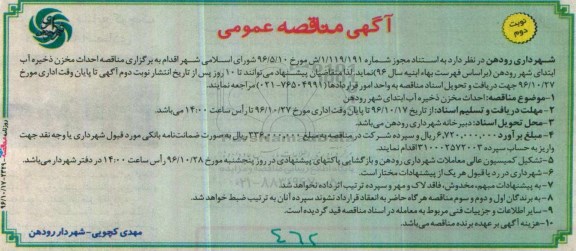 آگهی مناقصه عمومی
نوبت دوم
شهرداری رودهن در نظر دارد به استناد مجوز شماره ۱/۱۱۹/۱۹۱/ش مورخ ۹۶/۵/۱۰ شورای اسلامی شهر اقدام به برگزاری مناقصه احداث مخزن ذخیره آب
ابتدای شهر رودهن (براساس فهرست بهاء ابنیه سال ۹۶) نماید. لذا متقاضیان پیشنهاد می‌توانند تا ۱۰ روز پس از تاریخ انتشار نوبت دوم آگهی تا پایان وقت اداری مورخ
۹۶/۱۰/۲۷ جهت دریافت و تحویل اسناد مناقصه به واحد امور قراردادها (۷۶۵۰۴۹۹۱-۰۲۱) مراجعه نمایند.
۱-موضوع مناقصه: احداث مخزن ذخیره آب ابتدای شهر رودهن
۲- مهلت دریافت و تسلیم اسناد: از تاریخ ۹۶/۱۰/۱۷ تا پایان وقت اداری مورخ ۹۶/۱۰/۲۷ تا رأس ساعت ۱۴:۰۰ می‌باشد.
۳- محل تحویل اسناد: دبیرخانه شهرداری رودهن می‌باشد.
۴- مبلغ برآورد ۶,۷۲۰,۰۰۰,۰۰۰ ریال و سپرده شرکت در مناقصه به مبلغ ۳۳۶,۰۰۰,۰۰۰ ریال می‌باشد به صورت ضمانت‌نامه بانکی مورد قبول شهرداری یا وجه نقد جهت
واریز به حساب سپرده ۳۱۰۰۰۲۵۷۲۰۰۳ اقدام نمایند.
۵- تشکیل کمیسیون عالی معاملات شهرداری رودهن و بازگشایی پاکتهای پیشنهادی در روز پنجشنبه مورخ ۹۶/۱۰/۲۸ رأس ساعت ۱۴:۰۰ در دفتر شهردار می‌باشد.
۶- شهرداری در رد یا قبول هر یک از پیشنهادات مختار است.
۷- به پیشنهادات مبهم، مخدوش، فاقد لاک و مهر و سپرده ترتیب اثر داده نخواهد شد.
۸- به برندگان اول و دوم و سوم مناقصه هرگاه حاضر به انعقاد قرارداد نشوند سپرده آنان به ترتیب ضبط خواهد شد.
۹- سایر اطلاعات و جزییات فنی مربوطه به معامله در اسناد مناقصه قید گردیده است.
۱۰- هزینه آگهی بر عهده برنده مناقصه می‌باشد.
مهدی کچویی-شهردار رودهن
۴۶۲